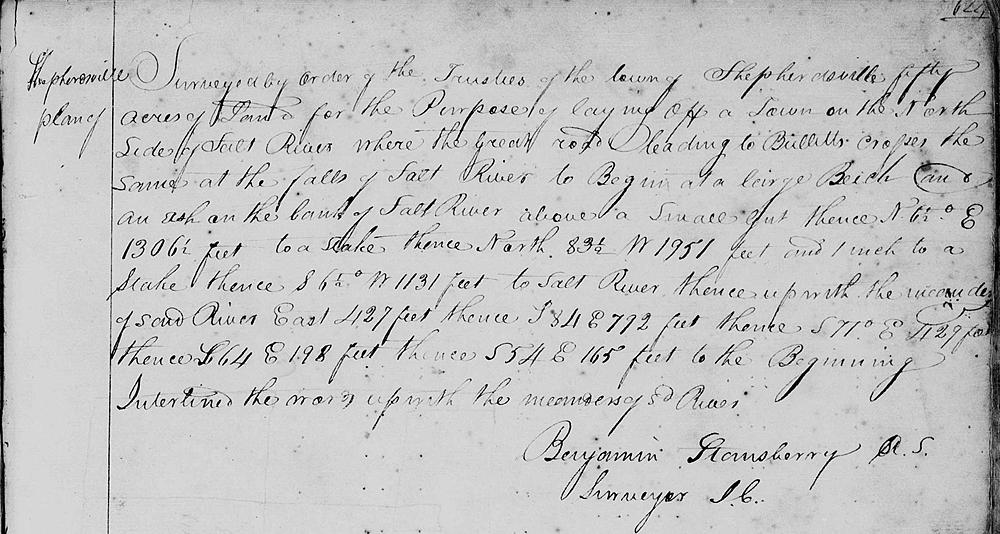 624
Shepherdsville
plan of
Surveyed by order of the Trustees of the town of Shepherdsville fifty
acres of Land for the Purpose of laying off a Town on the North
Side of Salt River where the great road leading to Bullitts crosses the
same at the falls of Salt River to Begin at a large Beich and
an ash on the bank of Salt River above a Small gut thence N. 6½° E
1306½ feet to a stake thence North 83½ W 1951 feet and 1 inch to a
Stake thence S 6½° W 1131 feet to Salt River thence up with the meanders
of said River East 427 feet thence S 84 E 792 feet thence S 71° E 429 feet
thence S 64 E 198 feet thence S 54 E 165 feet to the Beginning
Interlined the words up with the meanders of sd River
Benjamin Stansberry A. S.
Surveyor J. C.